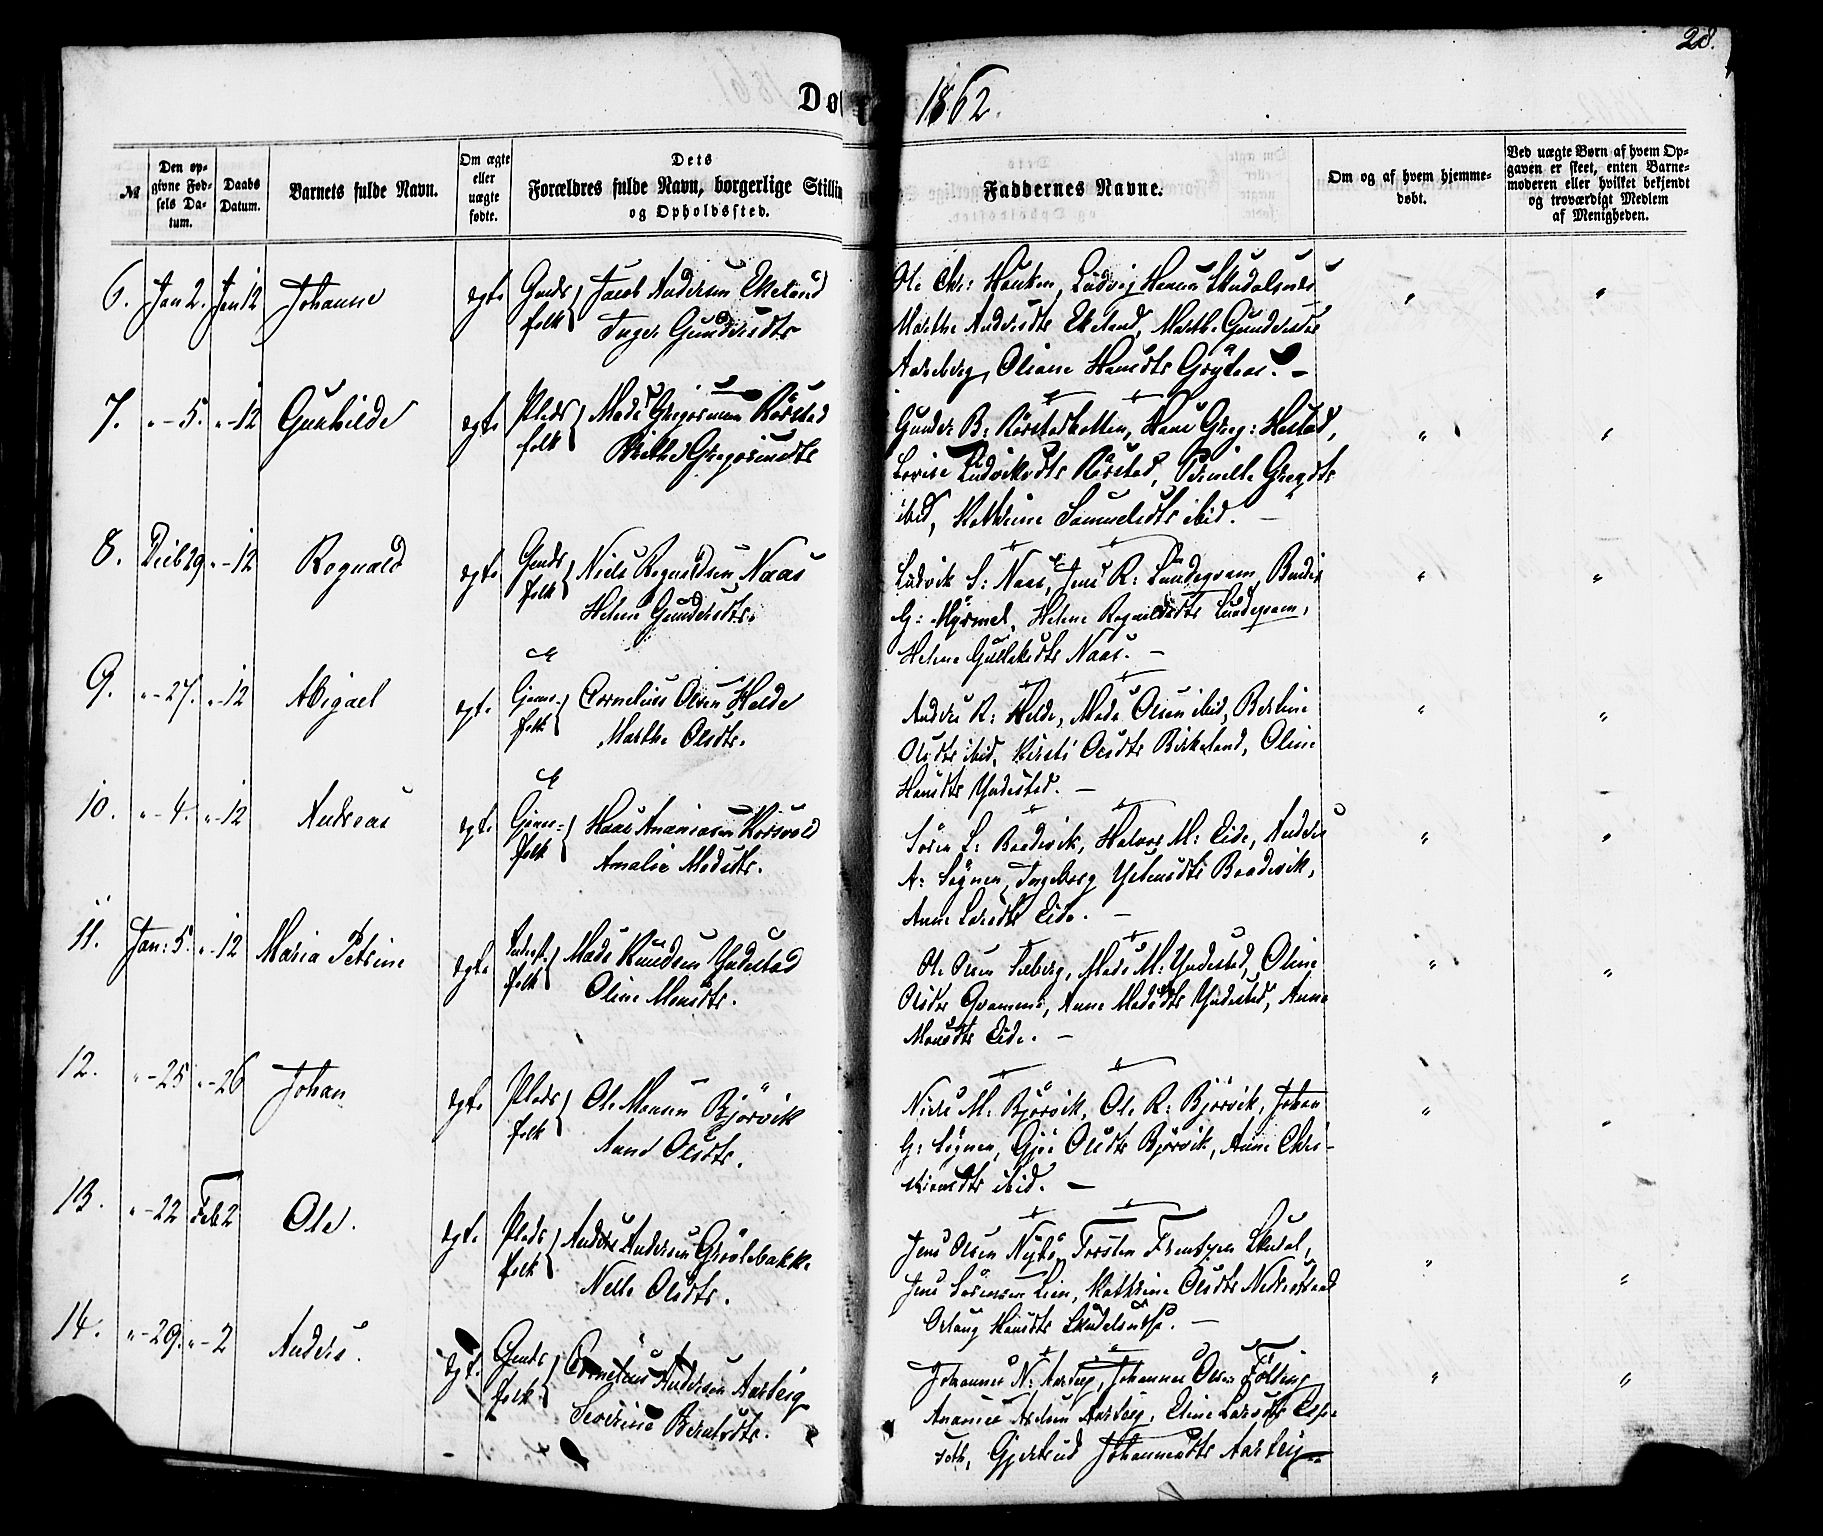 28.
Døbte 1862.
№
Den opgivne Fødsels Datum.
Daabs Datum.
Barnets fulde Navn.
Om ægte eller uægte fødte.
Dets Forældres fulde Navn, borgerlige Stilling og Opholdssted.
Faddernes Navne.
Om og af hvem hjemmedøbt.
Ved uægte Børn af hvem Opgaven er skeet, enten Barnemoderen eller hvilket bekjendt og troværdigt Medlem af Menigheden.
6. Jan 2. Jan 12 Johanne ægte Gaardfolk Jacob Andersen Ekeland
Inger Gundersdtr
Ole Chr: Hauken, Ludvig Hansen Skudalsnes
Marthe Andersdtr Ekeland, Marthe Gundersdtr
Aarberg, Oliane Hansdtr
7. " - 5. " - 12 Gunhilde ægte Pladsfolk Mads Gregorsen Rørstad
Gregoriusdtr
Gunder B: Rørstadbotten, Hans Greg: Hestad,
Lovise Ludviksdtr Rørstad, Pernille Gregdtr
ibid, Kathrine Samuelsdtr ibid. —
8. Decb 29 " - 12 Rognald ægte Gaardfolk Niels Rognaldsen Naas
Helene Gundersdtr.
Ludvik S: Naas, Jens R: Lundeqvam,
G: Myrmel, Helene Rognaldsdtr Lundeqvam,
Helene Gullaksdtr Naas. —
9. " - 27. " - 12 Abigael ægte folk Cornelius Olsen Helde
Marthe Olsdtr.
Anders R: Helde, Mads Olsen ibid, Berline
Olsdtr ibid, Kirsti Olsdtr Birkeland, Oline
Hansdtr Yndestad. —
10. " - 4. " - 12 Andreas ægte folk Hans Ananiasen Korsvold
Amalie Madsdtr.
Søren L: Bredvik, Halvor M: Eide, Anders
A: Sygnen, Ingeborg Bredvik,
Anne Larsdtr Eide. —
11. Jan: 5. " - 12 Maria Petrine ægte folk Mads Knudsen Yndestad
Oline Monsdtr.
Ole Olsen Solberg, Mads M: Yndestad, Oline
Olsdtr Qvamme, Anne Madsdtr Yndestad, Anne
Monsdtr Eide. —
12. " - 25 " - 26 Johan ægte Pladsfolk Ole Monsen Bjørvik
Anne Olsdtr.
Niels M: Bjørvik, Ole R: Bjørvik, Johan
G: Sygnen, Gjøe Olsdtr Bjørvik, Anne Chri-
stiansdtr ibid. —
13. " - 22 Feb 2 Ole. ægte Pladsfolk Anders Andersen
Nelle Olsdtr.
Jens Olsen Nybø, Torsten Skudal,
Jens Sørensen Lien, Kathrine Olsdtr Nedrestrand
Hansdtr —
14. " - 29. " - 2 Anders. ægte Gaardfolk Cornelius Andersen Aarberg
Severine Berntsdtr.
Johannes N: Aarberg, Johannes Olsen Følling
Ananias Axelsen Aarberg, Eline Larsdtr
Gjertrud Johannesdtr Aarberg —